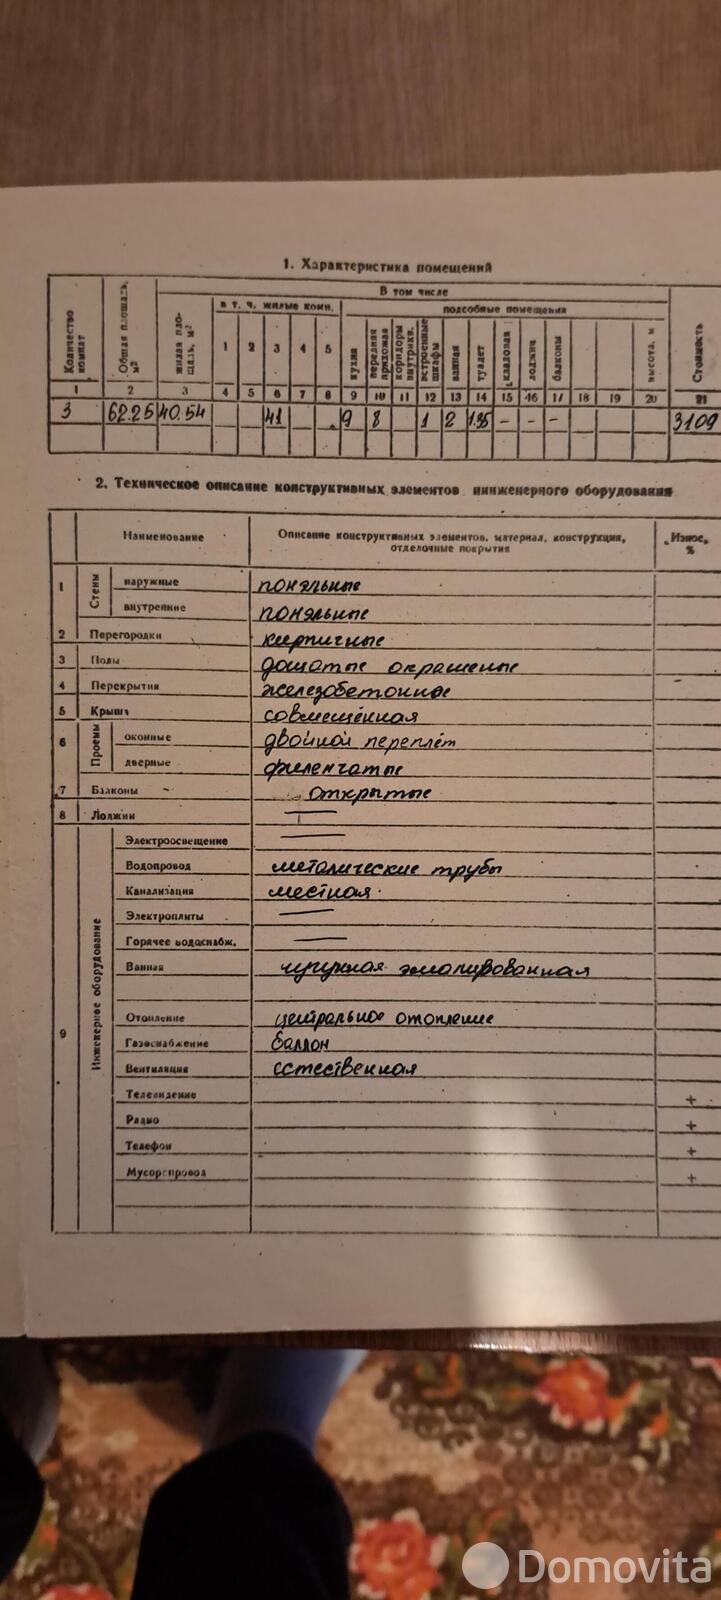 1. Характеристика помещений
Количество комнат
Общая площадь, м²
В том числе
жилая площадь, м²
в т. ч. жилые комн.
подсобные помещения
1 2 3 4 5
кухня
передняя прихожая
коридоры внутрикв.
встроенные шкафы
ванная
туалет
кладовая
лоджия
балконы
высота, м
Стоимость
1 2 3 4 5 6 7 8 9 10 11 12 13 14 15 16 17 18 19 20 21
3 62.25 40.54 41 9 8 1 2 1.35 – – – 3109
2. Техническое описание конструктивных элементов инженерного оборудования
Наименование
Описание конструктивных элементов, материал, конструкция, отделочные покрытия
Износ, %
1 Стены наружные понэльные
внутренние понэльные
2 Перегородки кирпичные
3 Полы дощатые окрашеные
4 Перекрытия железобетонное
5 Крыша совмещённая
6 Проемы оконные двойной переплёт
дверные филенчатые
7 Балконы – открытые
8 Лоджии —
9 Инженерное оборудование
Электроосвещение —
Водопровод металические трубы
Канализация местная
Электроплиты —
Горячее водоснабж. —
Ванная чугунная эмалированная
Отопление центральное отопление
Газоснабжение баллон
Вентиляция естественная
Телевидение +
Радио +
Телефон +
Мусоропровод +
Domovita